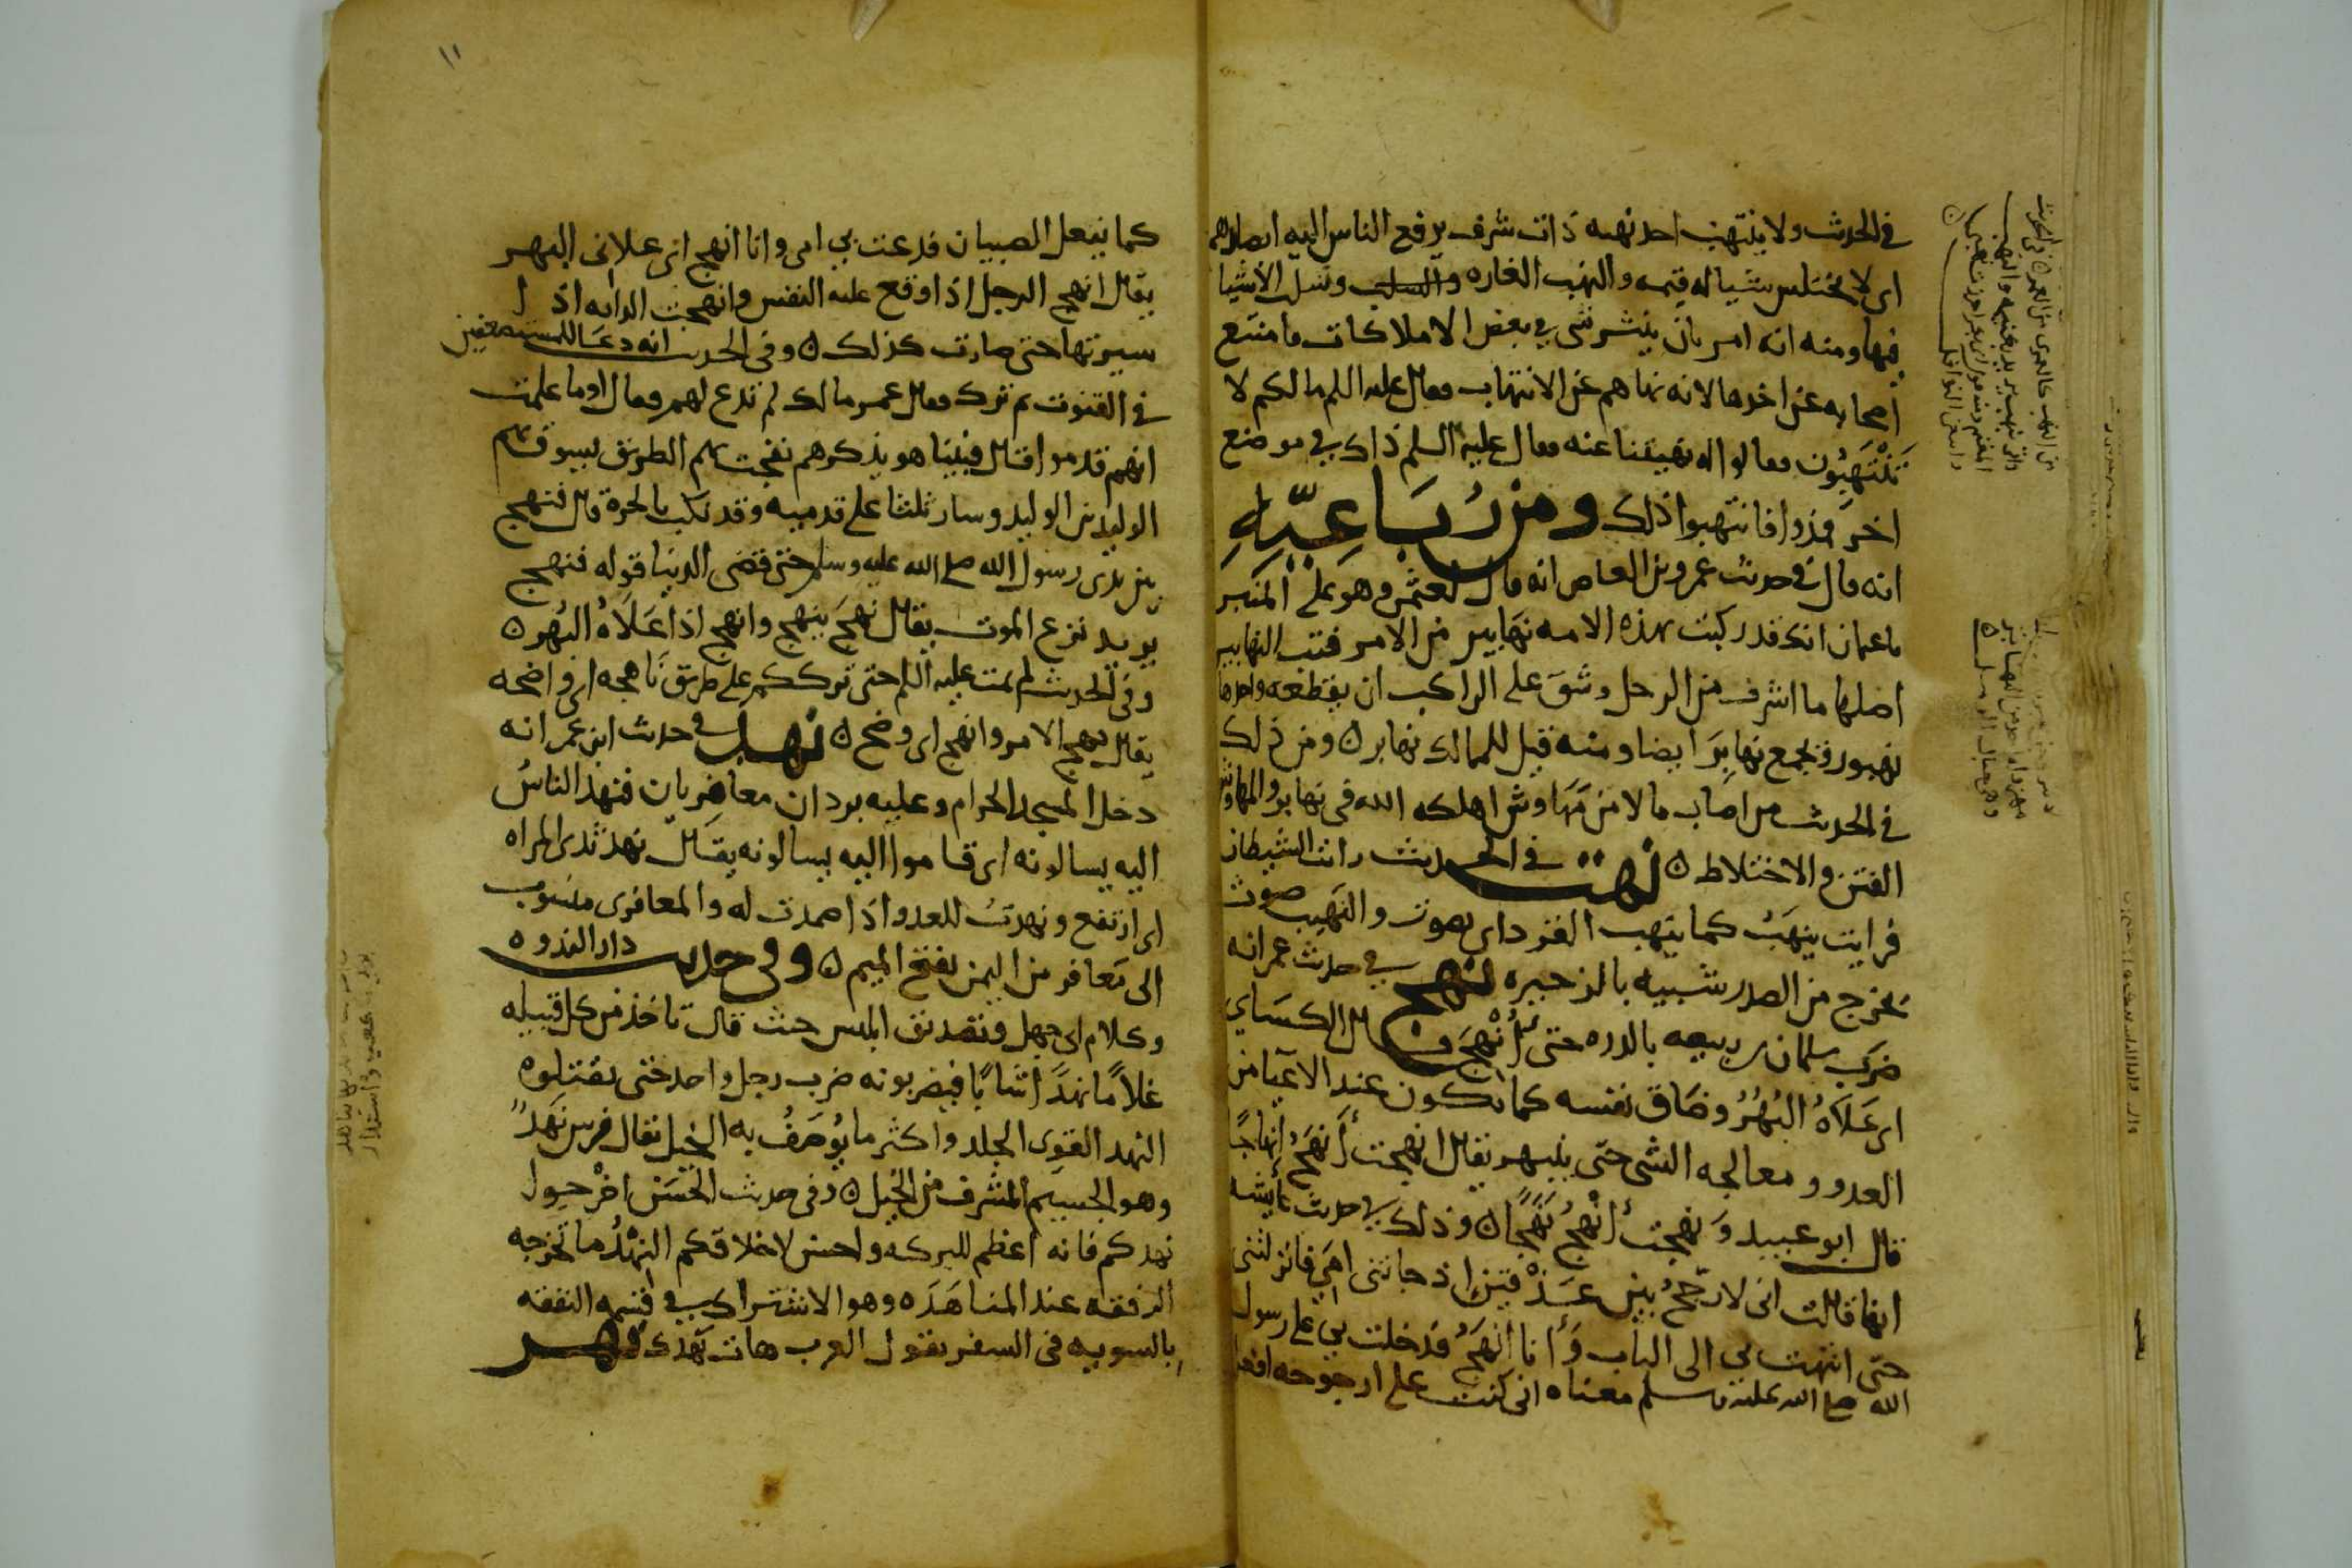 في الحديث ولا ينتهب احد نهبه ذات شرف يرفع الناس اليه ابصارهم
اى لا يختلس شيا له قيمه والنهب الغاره والسلب وسلب الاشيا
فيها ومنه انه امر بان ينثر شى في بعض الاملاكات فامتنع
اصحابه عن اخذها لانه نهاهم عن الانتهاب فقال عليه السلم مالكم لا
تَنْتَهِبُون فقالوا انه نهيتنا عنه فقال عليه السلم ذاك في موضع
اخر فذوا فانتهبوا ذلك ومن رُبَاعِيِّهِ
انه قال في حديث عمرو بن العاص انه قال لعثمن وهو على المنبر
ياعمان انك قد ركبت بهذه الامه نهابير من الامر فتب النهابير
اصلها ما اشرف من الرمل وشق على الراكب ان يقطعه واحدها
نهبور وتجمع نهابِرَ ايضا ومنه قيل للمهالك نهابر ه ومن ذلك
في الحديث من اصاب مالا من مَهَاوش اهلكه الله فى نهابر والمهاوش
الفتن والاختلاط ه نهت في الحديث رات الشيطان
فرايت ينهَتُ كما ينهت القرد اى يصوت والنهيت صوت
يخرج من الصدر شبيه بالزحير ه نهج في حديث عمر انه
ضرب سلمان بن ربيعه بالدره حتى اُنْهِجَ قال الكسَاى
اى عَلَاهُ البُهْرُ وضَاق نفسه كما تكون عند الاعيا من
العدو ومعالجه الشى حتى ينبهر يقال انهجت اُنهِجُ اِنهاجًا
قال ابو عبيد وَ نهجت اَنْهَجُ نَهَجًا ه وذلك في حديث عايشه
انها قالت انى لارجّحُ بين عَذْقين اذ جاتنى امى فانزلتنى
حتى انتهت بى الى الباب وَ انا اَنهَجُ فدخلت بى على رسول
الله صلى الله عليه وسلم معناه انى كنت على ارجوحه افعل
١١
كما يفعل الصبيان فدعت بي امى وانا انهج اى علانى البهر
يقال انهج الرجل اذا وقع عليه النفس وانهجت الدابه اذا
سيرتها حتى صارت كذلك ه وفى الحديث انه دعا للمستضعفين
في القنوت ثم ترك فقال عمر مالك لم تدع لهم فقال اوما علمت
انهم قدموا قال فبينا هو يذكرهم نفجت بهم الطريق يسوق بهم
الوليد بن الوليد وسار ثلثا على قدميه وقد نكب بالحرة قال فنهج
بين يدى رسول الله صلى الله عليه وسلم حتى قضى الدنيا قوله فنهج
يريد نزع الموت يقال نَهَجَ ينهج وانهج اذا عَلَاهُ البُهْر ه
وفى الحديث لم يمت عليه السلم حتى ترككم على طريق ناهجه اى واضحه
يقال نهج الامر وانهج اى وضح ه نهد في حديث ابن عمر انه
دخل المسجد الحرام وعليه بردان معافريان فنهد الناسُ
اليه يسالونه اى قاموا اليه يسالونه يقال نهد ثدى المراه
اى ارتفع ونهدتُ للعدو اذا صمدت له والمعافرى منسوب
الى مَعافر من اليمن بفتح الميم ه وفي حديث دار الندوه
وكلام ابى جهل وتصديق ابليس حيث قال تاخذ من كل قبيله
غلامًا نهدًا شابًا فيضربونه ضرب رجل واحد حتى يقتلوه
النهد القوى الجلد واكثر ما يُوصَفُ به الخيل يقال فرس نَهْدٌ
وهو الجسيم المشرف من الخيل ه وفى حديث الحَسَن اخرْجوا
نهدكم فانه اعظم للبركه واحسن لاخلاقكم النِهْدُ ما تخرجه
الرفقه عند المناهَدَه وهو الاشتراك في قسمه النفقه
بالسويه فى السفر يقول العرب هات نِهْدك نهر